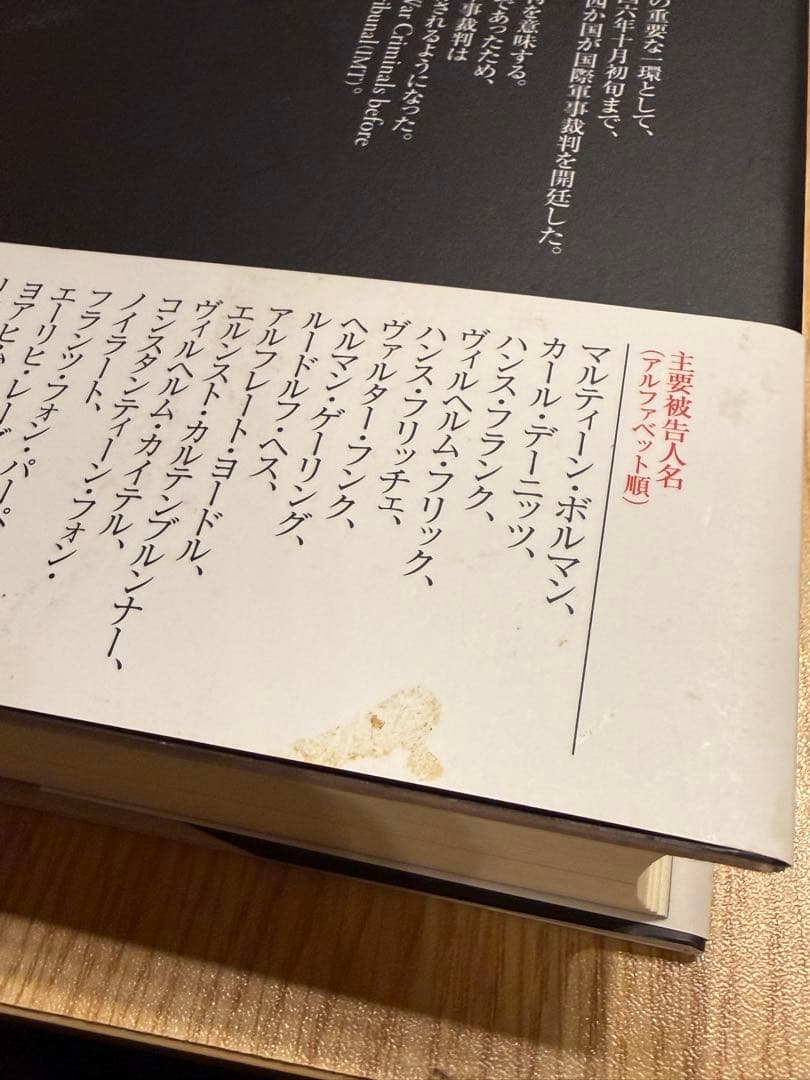 の重要な一環として、
四六年十月初旬まで、
四か国が国際軍事裁判を開廷した。
を意味する。
であったため、
事裁判は
されるようになった。
War Criminals before
Tribunal(IMT)。
主要被告人名
(アルファベット順)
マルティーン・ボルマン、
カール・デーニッツ、
ハンス・フランク、
ヴィルヘルム・フリック、
ハンス・フリッチェ、
ヴァルター・フンク、
ヘルマン・ゲーリング、
ルードルフ・ヘス、
アルフレート・ヨードル、
エルンスト・カルテンブルンナー、
ヴィルヘルム・カイテル、
コンスタンティーン・フォン・
ノイラート、
フランツ・フォン・パーペ
エーリヒ・レーダ
ヨアヒム・